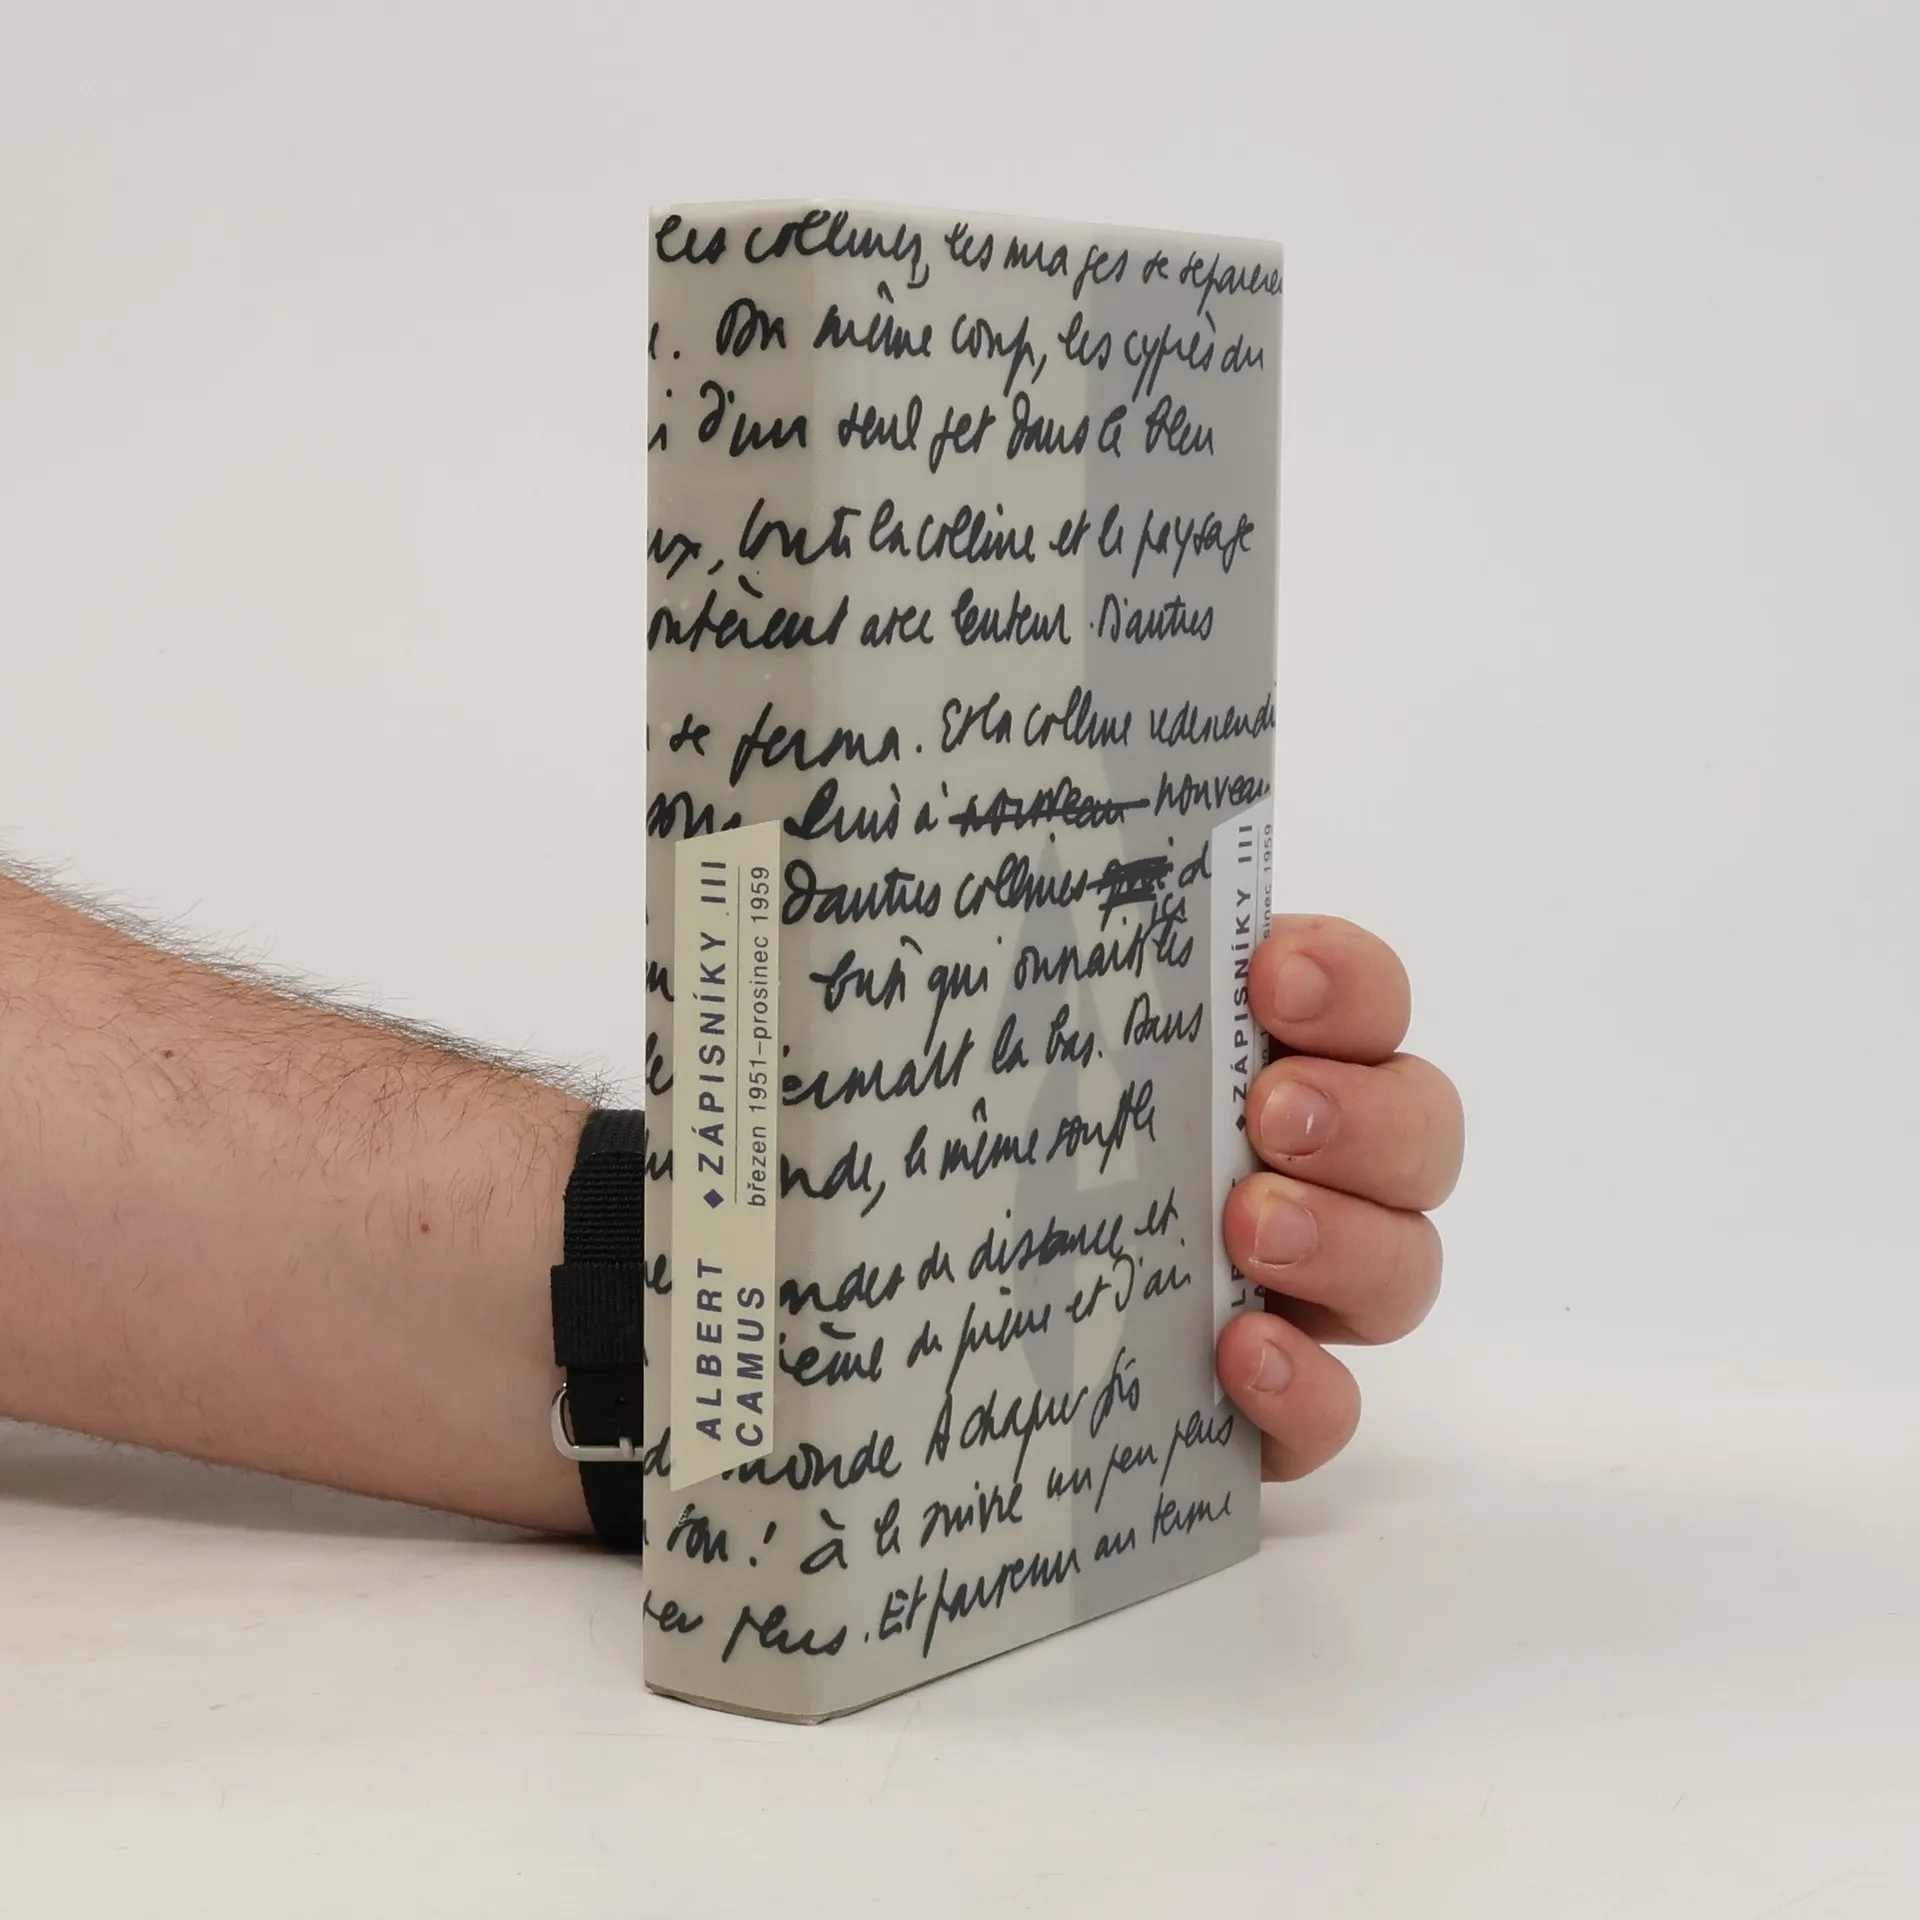 les collines, les nuages se séparèren
. Du même coup, les cyprès du
i d'un seul jet dans le bleu
ux, toute la colline et le paysage
ontèrent avec lenteur. D'autres
se ferma. Et la colline redescendi
Puis à nouveau nouveau
D'autres collines
qui
la bas. Dans
onde, le même souffle
de distance et
de pierre et j'ai
monde A chaque fois
son ! à le suivre un peu plus
peu plus. Et parvenu au terme
ALBERT
CAMUS
◆ ZÁPISNÍKY III
březen 1951–prosinec 1959
◆ ZÁPISNÍKY III
sinec 1959